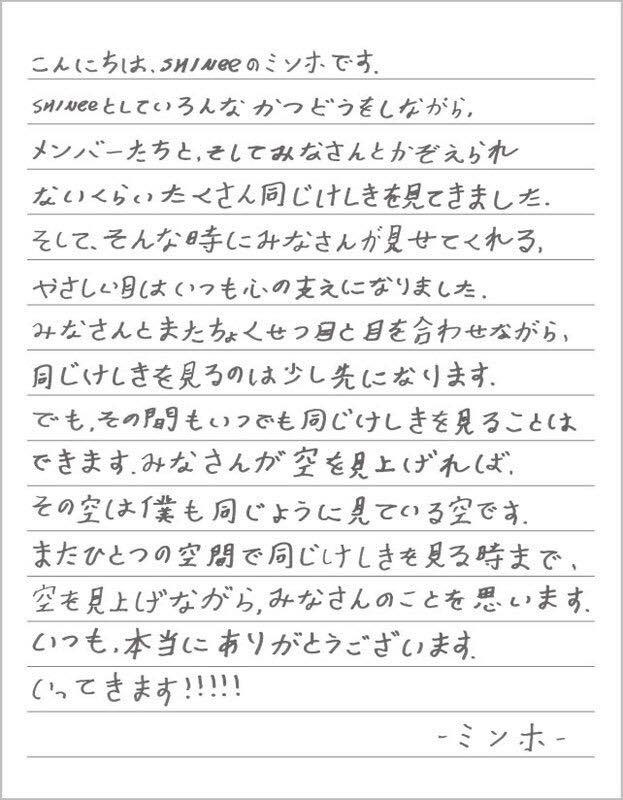 こんにちは、SHINeeのミンホです.
SHINeeとしていろんな かつどうをしながら,
メンバーたちと,そしてみなさんとかぞえられ
ないくらいたくさん同じけしきを見てきました.
そして、そんな時にみなさんが見せてくれる,
やさしい目はいつも心の支えになりました.
みなさんとまたちょくせつ目と目を合わせながら,
同じけしきを見るのは少し先になります.
でも,その間もいつでも同じけしきを見ることは
できます.みなさんが空を見上げれば,
その空は僕も同じように見ている空です.
またひとつの空間で同じけしきを見る時まで,
空を見上げながら,みなさんのことを思います.
いつも,本当にありがとうございます.
いってきます!!!!!
-ミンホ-